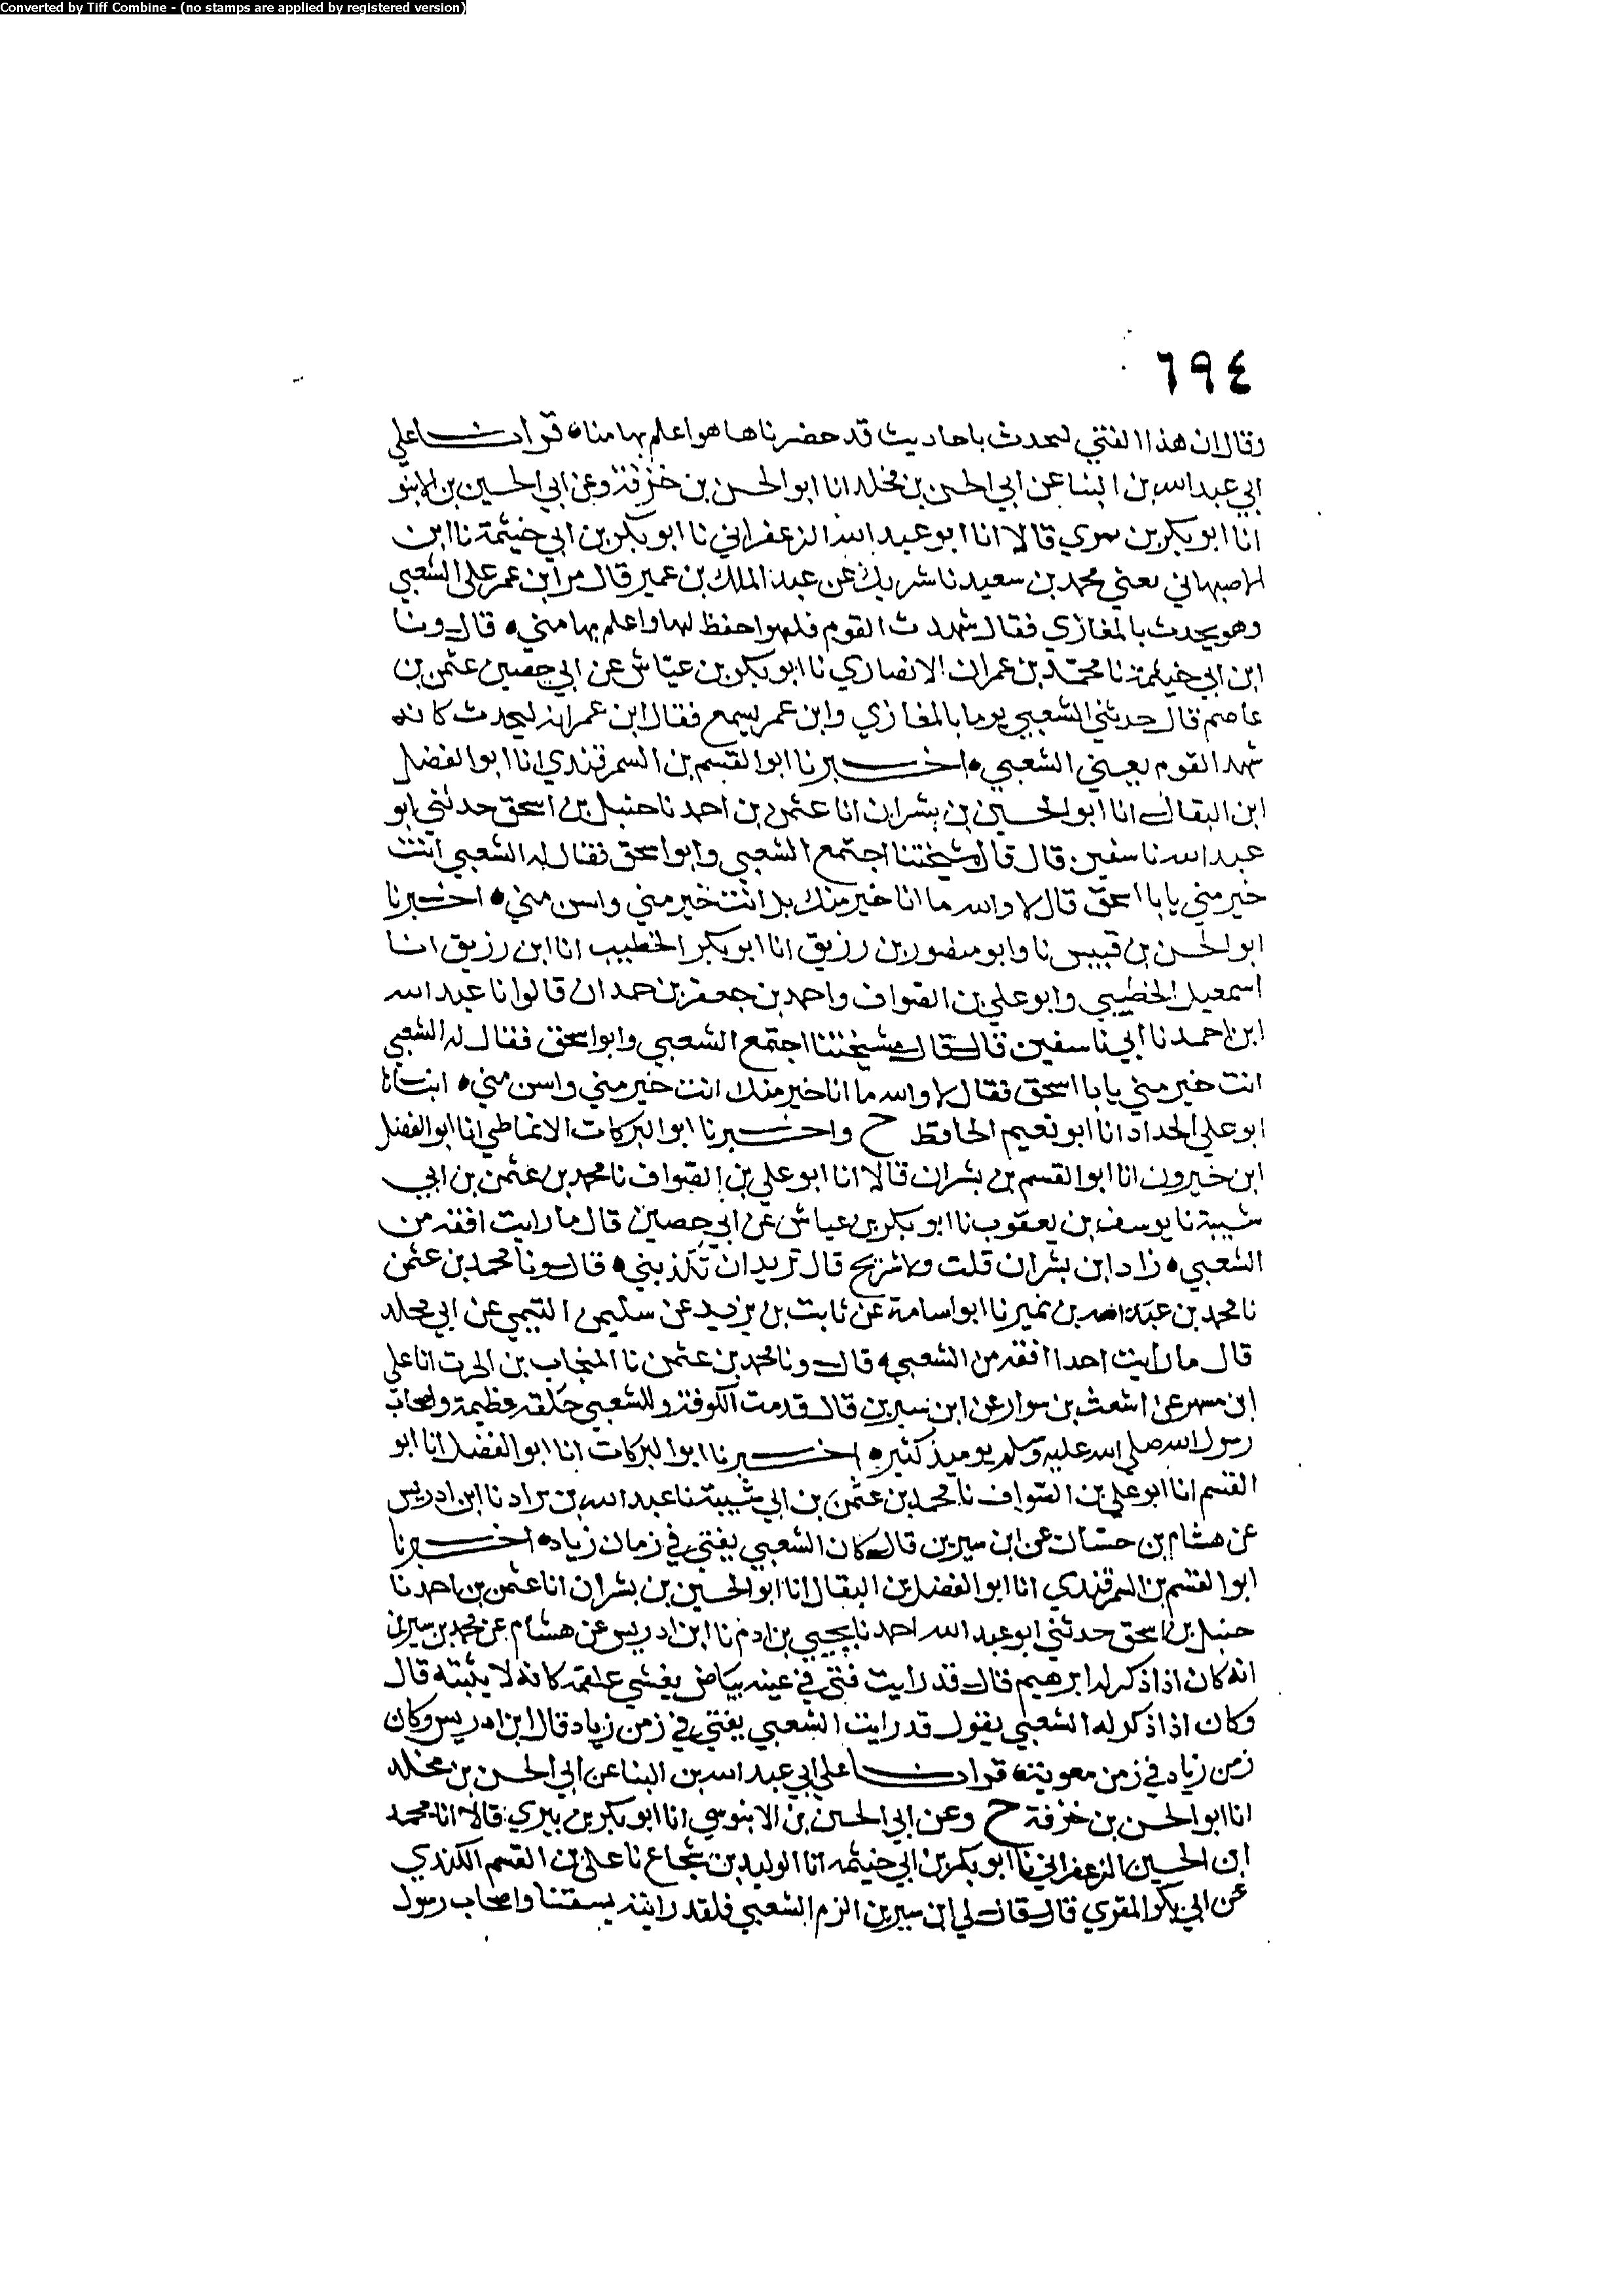 Converted by Tiff Combine - (no stamps are applied by registered version)
٦٩٤
وقال ان هذا الفتى ليحدث باحاديث قد حضرناها هو اعلم بها منا ه قرات على
ابي عبد الله بن البنا عن ابي الحسن بن مخلد انا ابو الحسن بن خزفة وعن ابي الحسين بن الابنو
انا ابو بكر بن بيري قالا انا ابو عبد الله الزعفراني نا ابو بكر بن ابي خيثمة نا ابن
الاصبهاني يعني محمد بن سعيد نا شريك عن عبد الملك بن عمير قال مر ابن عمر على الشعبي
وهو يحدث بالمغازي فقال شهدت القوم فلهو احفظ لها واعلم بها مني ه قال ونا
ابن ابي خيثمة نا محمد بن عمران الانصاري نا ابو بكر بن عياش عن ابي حصين عثمن بن
عاصم قال حدثني الشعبي يوما بالمغازي وابن عمر يسمع فقال ابن عمر انه ليحدث كانه
شهد القوم يعني الشعبي ه اخبرنا ابو القسم بن السمرقندي انا ابو الفضل
ابن البقال انا ابو الحسين بن بشران انا عثمن بن احمد نا حنبل بن اسحق حدثني ابو
عبد الله نا سفين قال قال مشيختنا اجتمع الشعبي وابو اسحق فقال له الشعبي انت
خير مني يا با اسحق قال لا والله ما انا خير منك بل انت خير مني واسن مني ه اخبرنا
ابو الحسن بن قبيس نا وابو منصور بن رزيق انا ابو بكر الخطيب انا ابن رزيق انا
اسمعيل الخطبي وابو علي بن الصواف واحمد بن جعفر بن حمدان قالوا نا عبد الله
ابن احمد نا ابي نا سفين قال قال مشيختنا اجتمع الشعبي وابو اسحق فقال له الشعبي
انت خير مني يا با اسحق فقال لا والله ما انا خير منك انت خير مني واسن مني ه انبانا
ابو علي الحداد انا ابو نعيم الحافظ ح واخبرنا ابو البركات الانماطي انا ابو الفضل
ابن خيرون انا ابو القسم بن بشران قالا انا ابو علي بن الصواف نا محمد بن عثمن بن ابي
شيبة نا يوسف بن يعقوب نا ابو بكر بن عياش عن ابي حصين قال ما رايت افقه من
الشعبي ه زاد ابن بشران قلت ولا شريح قال تريد ان تكذبني ه قال ونا محمد بن عثمن
نا محمد بن عبد الله بن نمير نا ابو اسامة عن ثابت بن يزيد عن سليمن التيمي عن ابي مجلد
قال ما رايت احدا افقه من الشعبي ه قال ونا محمد بن عثمن نا المنجاب بن الحرث انا علي
ابن مسهر عن اشعث بن سوار عن ابن سيرين قال قدمت الكوفة وللشعبي حلقه عظيمة واصحاب
رسول الله صلى الله عليه وسلم يوميذ كثير ه اخبرنا ابو البركات انا ابو الفضل انا ابو
القسم انا ابو علي بن الصواف نا محمد بن عثمن بن ابي شيبة نا عبد الله بن براد نا ابن ادريس
عن هشام بن حسان عن ابن سيرين قال كان الشعبي يفتي في زمان زياد ه اخبرنا
ابو القسم بن السمرقندي انا ابو الفضل بن البقال انا ابو الحسين بن بشران انا عثمن بن احمد نا
حنبل بن اسحق حدثني ابو عبد الله احمد نا يحيى بن ادم نا ابن ادريس عن هشام عن محمد بن سيرين
انه كان اذا ذكر له ابرهيم قال قد رايت فتى في عينه بياض يغشى علقمة كانه لا يثبته قال
وكان اذا ذكر له الشعبي يقول قد رايت الشعبي يفتي في زمن زياد قال ابن ادريس وكان
زمن زياد في زمن معوية ه قرات على ابي عبد الله بن البنا عن ابي الحسن بن مخلد
انا ابو الحسن بن خزفة ح وعن ابي الحسين بن الابنوسي انا ابو بكر بن بيري قالا انا محمد
ابن الحسين الزعفراني نا ابو بكر بن ابي خيثمه انا الوليد بن شجاع نا علي بن القسم الكندي
عن ابي بكر المقري قال قال لي ابن سيرين الزم الشعبي فلقد رايته يستفتا واصحاب رسول